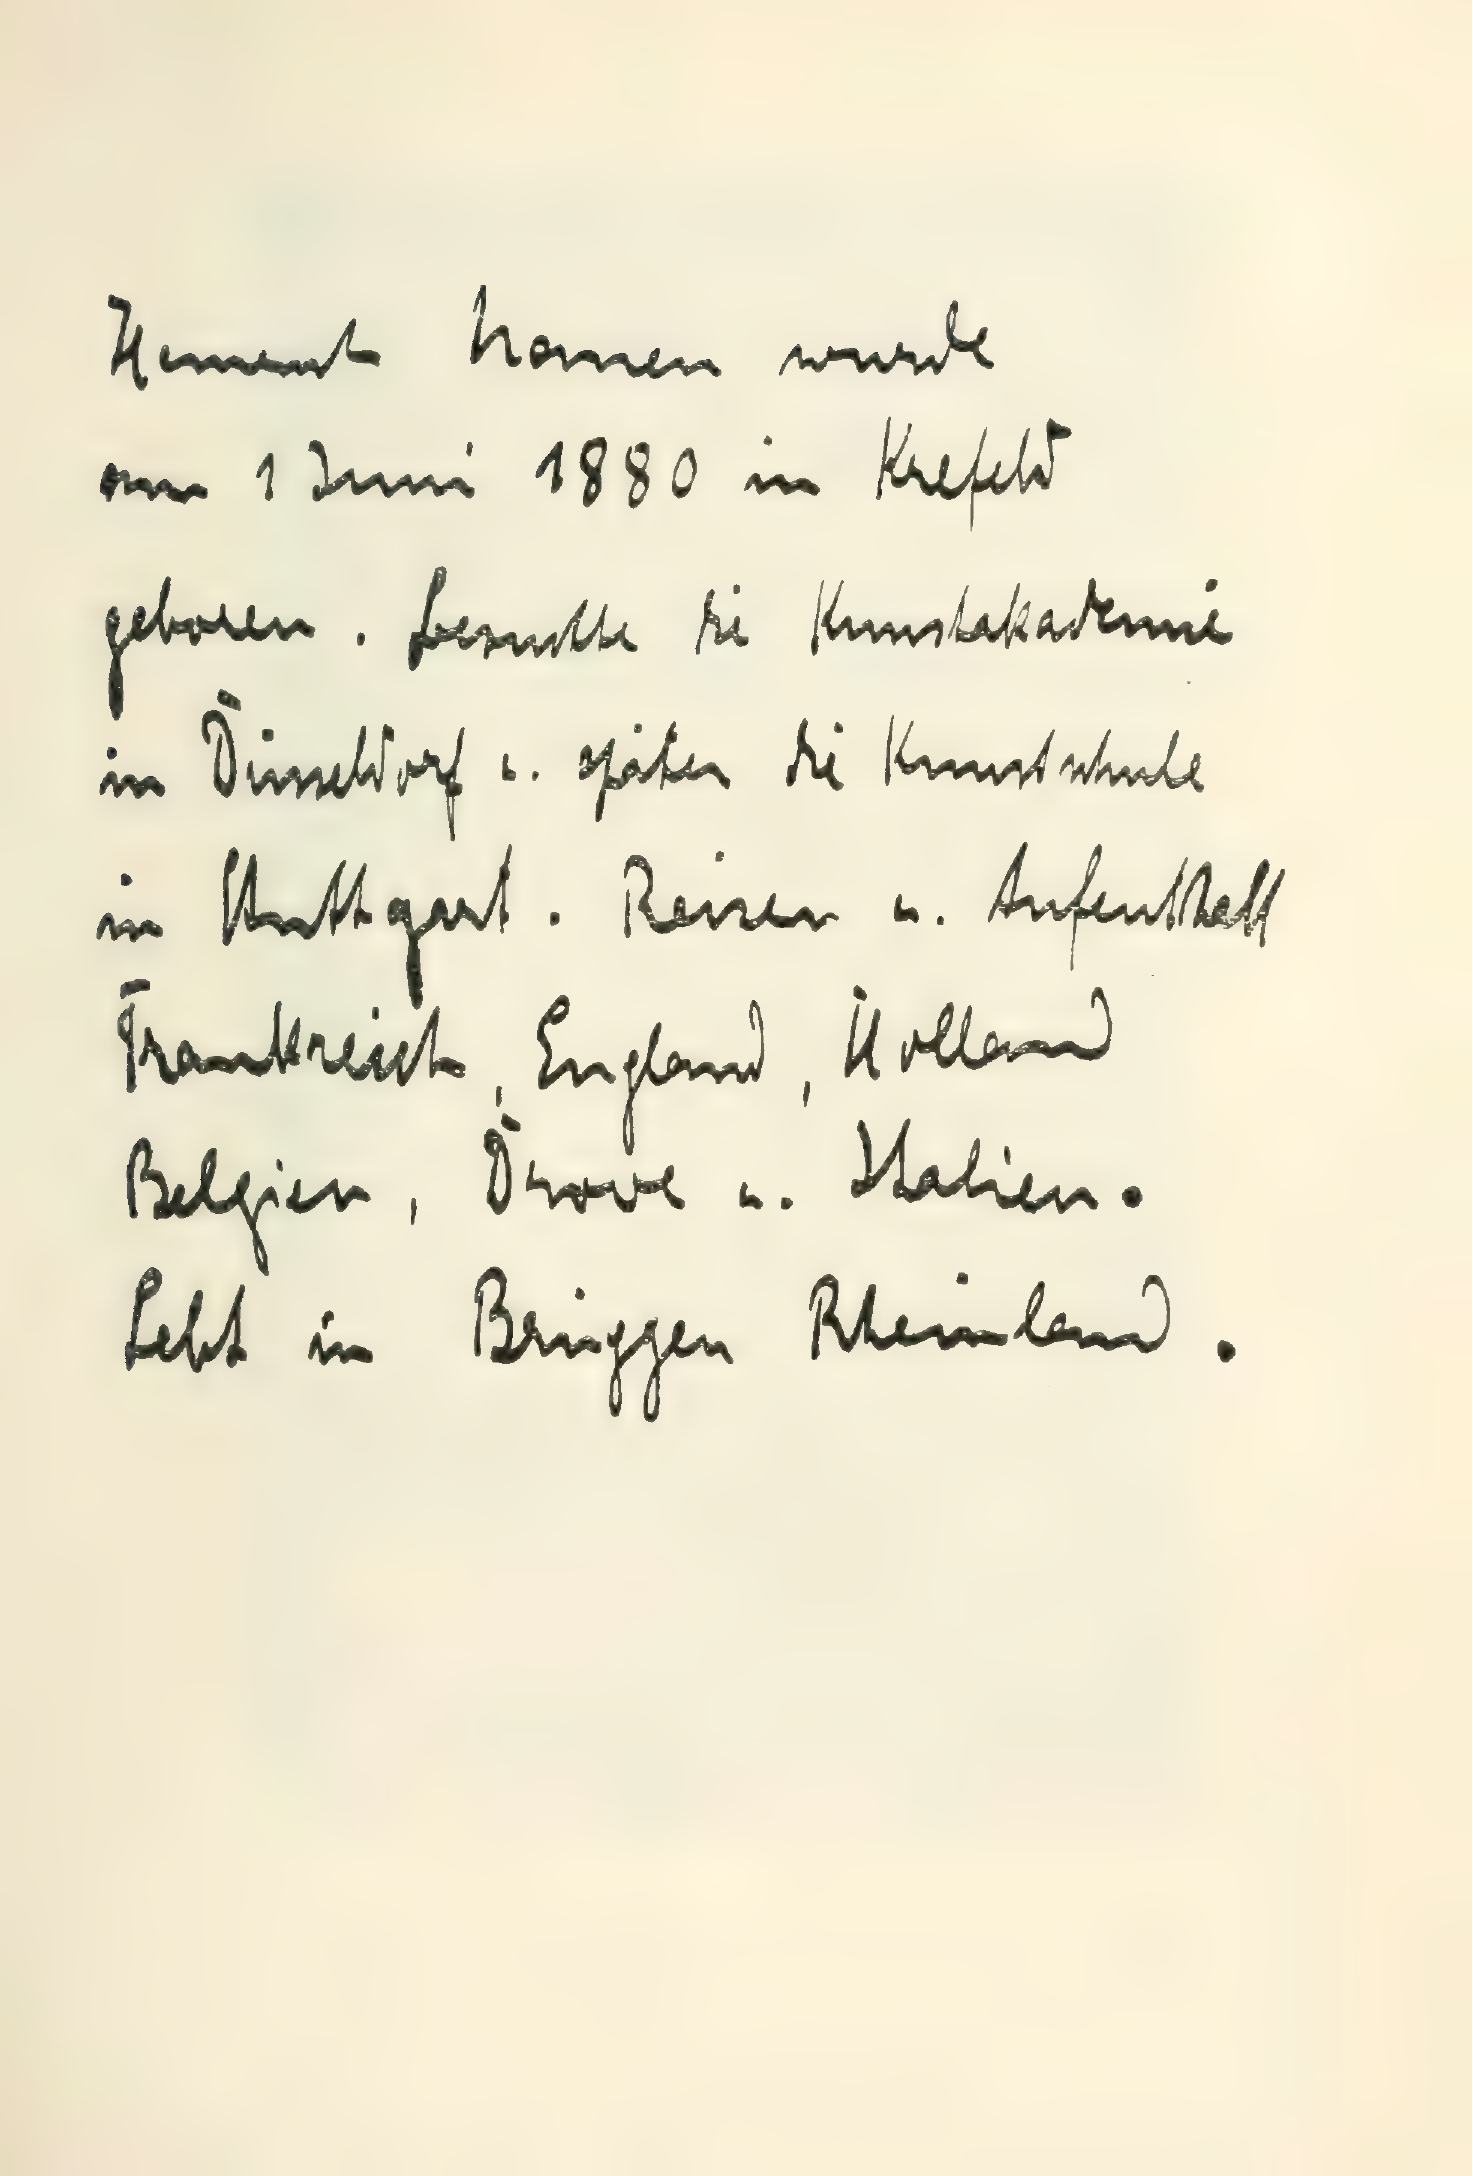 Heinrich Nauen wurde
am 1 Juni 1880 in Krefeld
geboren. besuchte die Kunstakademie
in Düsseldorf u. später die Kunstschule
in Stuttgart. Reisen u. Aufenthalt
Frankreich, England, Holland
Belgien, Drove u. Italien.
Lebt in Brüggen Rheinland.